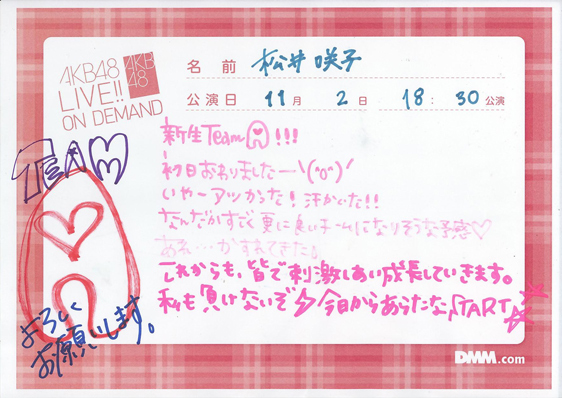 AKB48
LIVE!!
ON DEMAND
AKB
48
名前 松井咲子
公演日 11月 2日 18:30公演
TEAM
A
よろしく
お願いします。
新生Team A!!!
初日おわりましたー\(^o^)/
いやーアツかった!汗かいた!!
なんだかすごく更に良いチームになりそうな予感♡
あれ…かすれてきた。
これからも、皆で刺激しあい成長していきます。
私も負けないぞ⚡今日からあらたなSTART☆
DMM.com